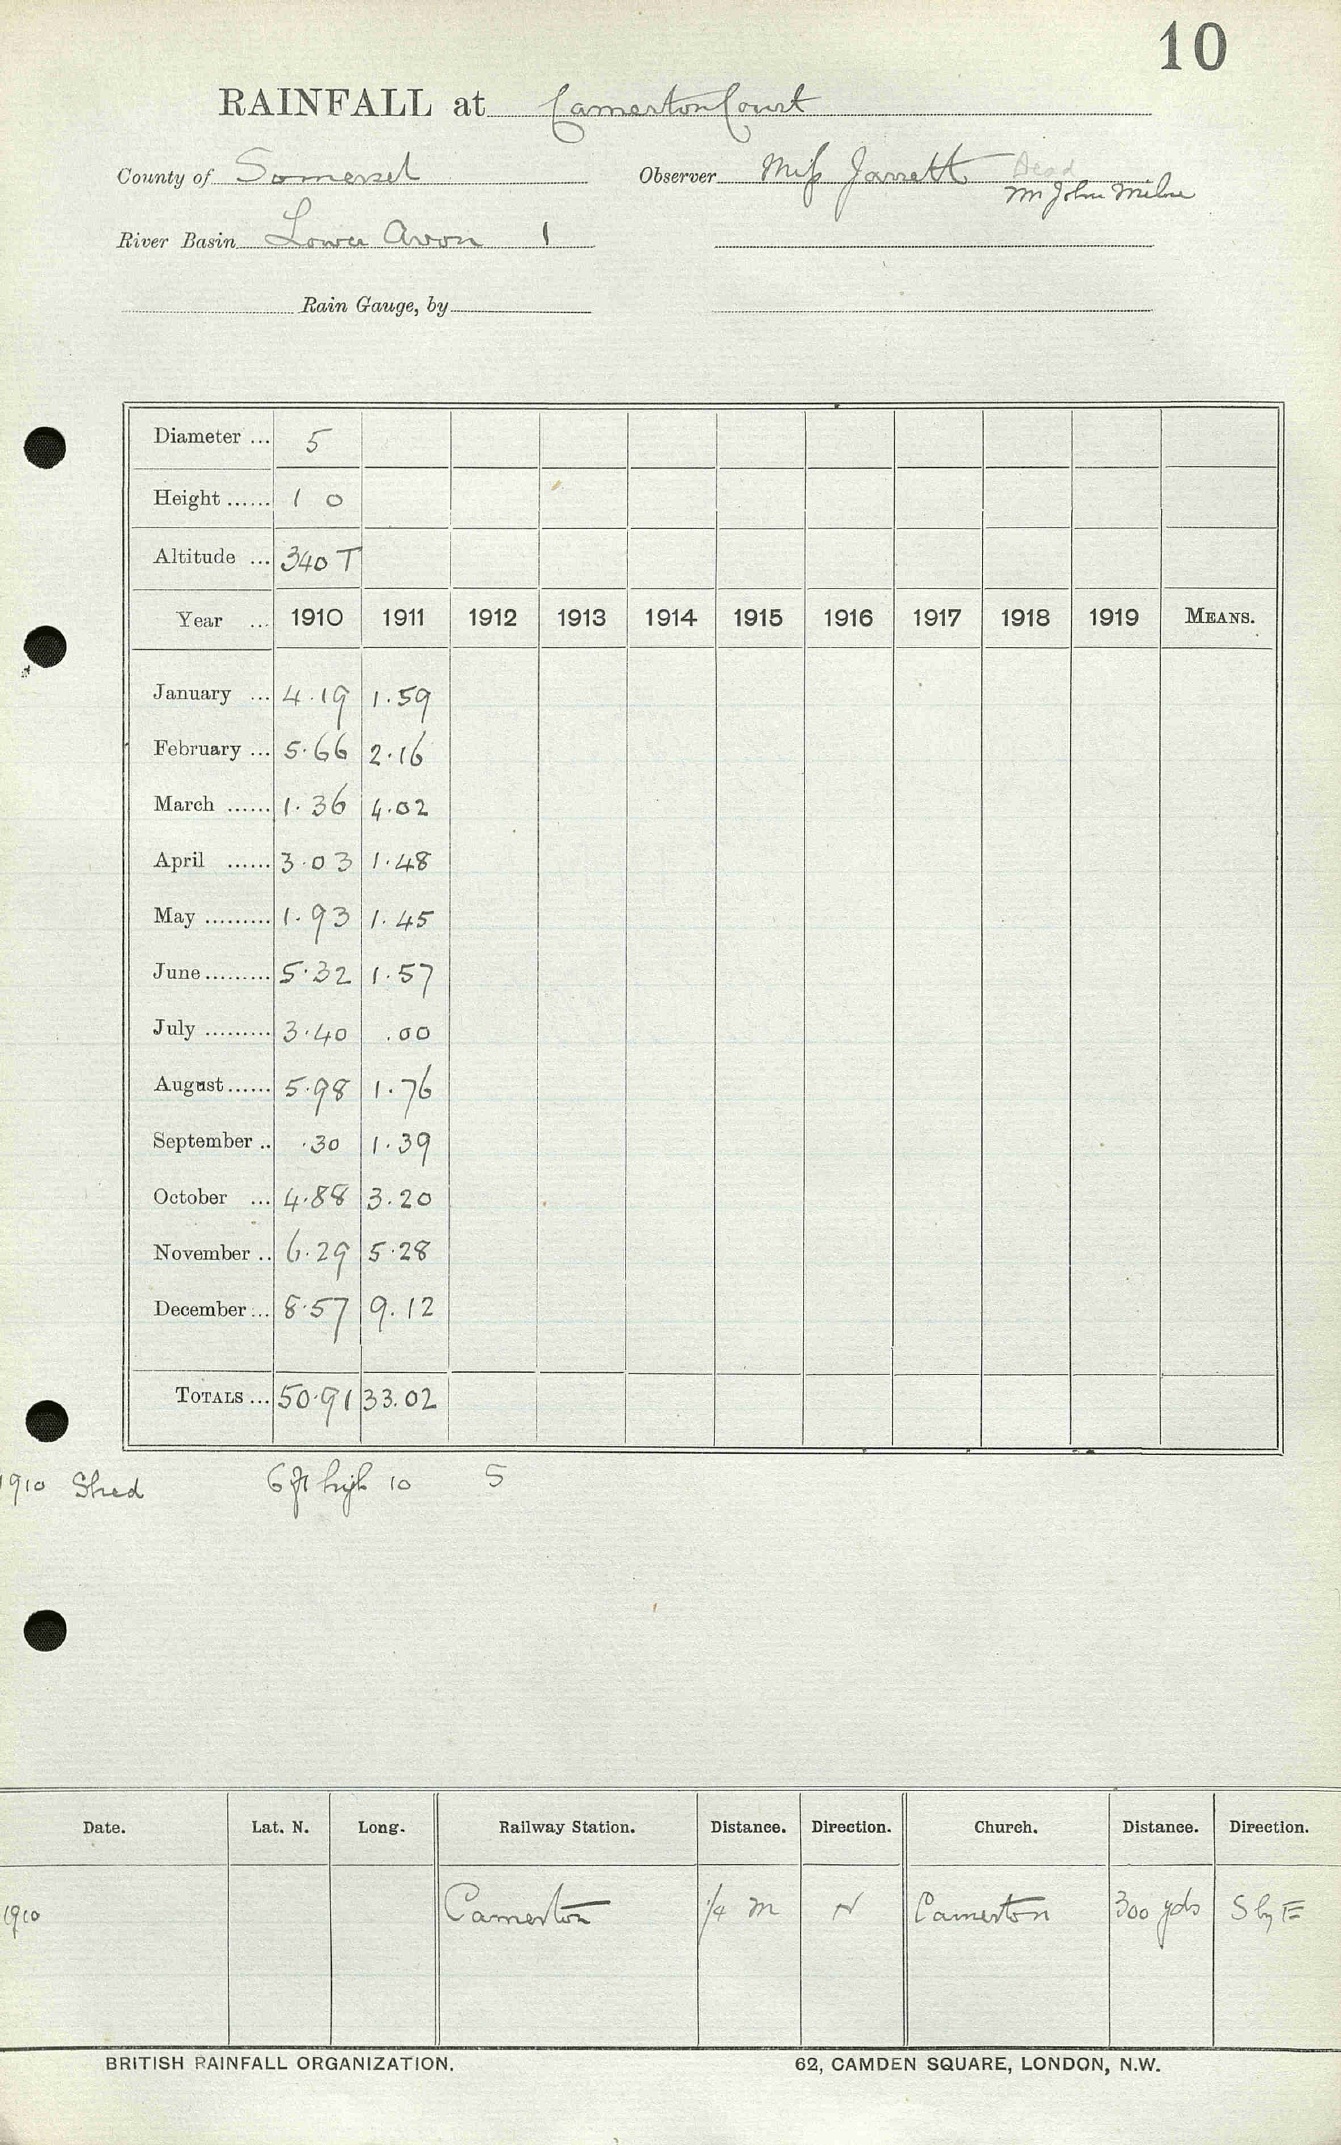 10
RAINFALL at Camerton Court
County of Somerset Observer Miss Jarrett Dead
Mr John Milne
River Basin Lower Avon 1
Rain Gauge, by
Diameter ... 5
Height ...... 1 0
Altitude ... 340 T
Year ... 1910 1911 1912 1913 1914 1915 1916 1917 1918 1919 MEANS.
January ... 4.19 1.59
February ... 5.66 2.16
March ...... 1.36 4.02
April ...... 3.03 1.48
May ......... 1.93 1.45
June ......... 5.32 1.57
July ......... 3.40 .00
August ...... 5.98 1.76
September .. .30 1.39
October ... 4.88 3.20
November .. 6.29 5.28
December ... 8.57 9.12
TOTALS ... 50.91 33.02
1910 Shed 6 ft high 10 5
Date. Lat. N. Long. Railway Station. Distance. Direction. Church. Distance. Direction.
1910 Camerton 1/4 m N Camerton 300 yds S by E
BRITISH RAINFALL ORGANIZATION. 62, CAMDEN SQUARE, LONDON, N.W.